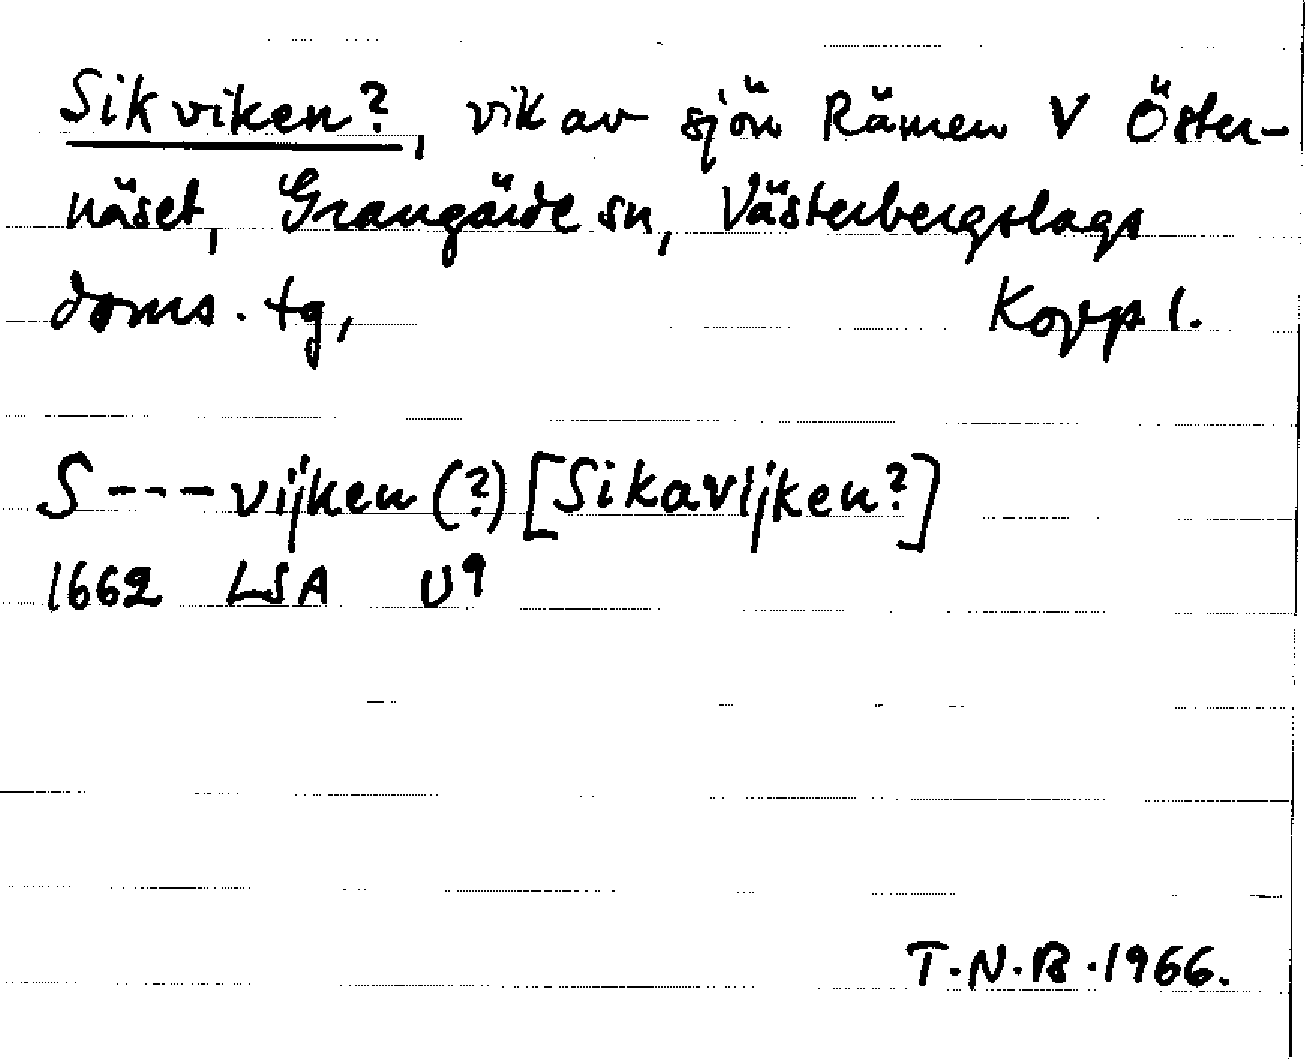 Sikviken?, vik av sjön Rämen V Öster-
näset, Grangärde sn, Västerbergslags
doms. tg, Kopp l.
S---vijken (?) [Sikavijken?]
1662 LSA U9
T.N.B. 1966.